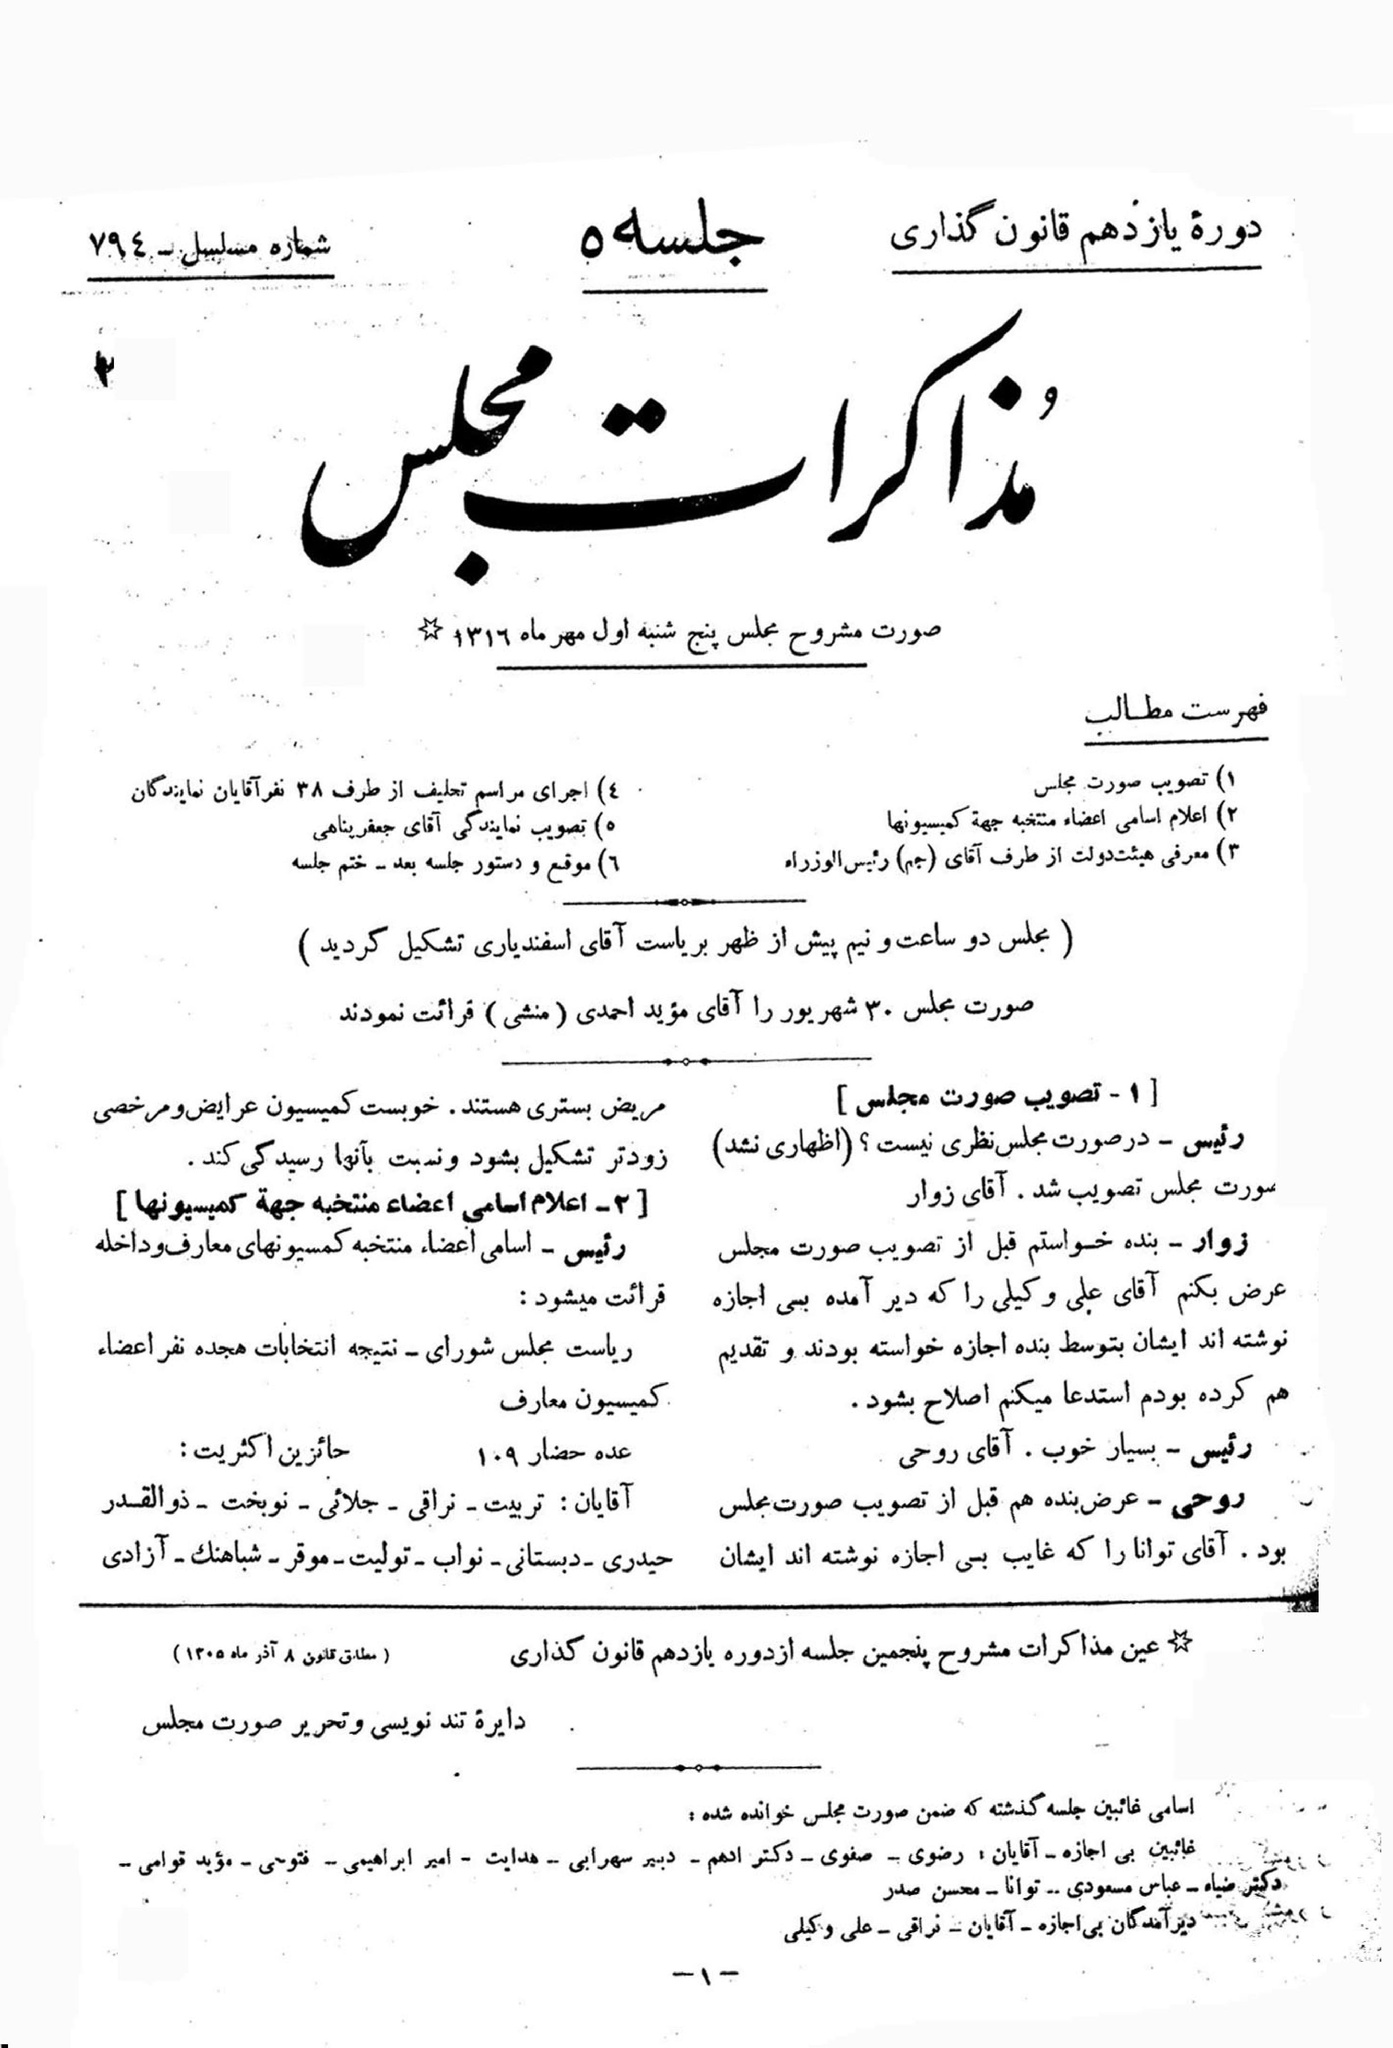 دورۀ یازدهم قانون گذاری
جلسه ٥
شماره مسلسل ـ ٧٩٤
مُذاکرات مجلس
صورت مشروح مجلس پنج شنبه اول مهر ماه ١٣١٦ ☆
فهرست مطالب
١) تصویب صورت مجلس
٢) اعلام اسامی اعضاء منتخبه جهة کمیسیونها
٣) معرفی هیئت‌دولت از طرف آقای (جم) رئیس‌الوزراء
٤) اجرای مراسم تحلیف از طرف ٣٨ نفرآقایان نمایندگان
٥) تصویب نمایندگی آقای جعفرپناهی
٦) موقع و دستور جلسه بعد ـ ختم جلسه
( مجلس دو ساعت و نیم پیش از ظهر بریاست آقای اسفندیاری تشکیل گردید )
صورت مجلس ٣٠ شهریور را آقای مؤید احمدی (منشی) قرائت نمودند
[ ١ - تصویب صورت مجلس ]
رئیس ـ درصورت مجلس نظری نیست ؟ (اظهاری نشد)
صورت مجلس تصویب شد . آقای زوار
زوار ـ بنده خـواستم قبل از تصویب صورت مجلس
عرض بکنم آقای علی وکیلی را که دیر آمده بی اجازه
نوشته اند ایشان بتوسط بنده اجازه خواسته بودند و تقدیم
هم کرده بودم استدعا میکنم اصلاح بشود .
رئیس ـ بسیار خوب . آقای روحی
روحی ـ عرض‌بنده هم قبل از تصویب صورت‌مجلس
بود . آقای توانا را که غایب بی اجازه نوشته اند ایشان
مریض بستری هستند . خوبست کمیسیون عرایض و مرخصی
زودتر تشکیل بشود و نسبت بآنها رسیدگی کند .
[ ٢ ـ اعلام اسامی اعضاء منتخبه جهة کمیسیونها ]
رئیس ـ اسامی اعضاء منتخبه کمسیونهای معارف و داخله
قرائت میشود :
ریاست مجلس شورای ـ نتیجه انتخابات هجده نفر اعضاء
کمیسیون معارف
عده حضار ١٠٩ حائزین اکثریت :
آقایان : تربیت ـ نراقی ـ جلائی ـ نوبخت ـ ذوالقـدر
حیدری ـ دبستانی ـ نواب ـ تولیت ـ موقر ـ شباهنك ـ آزادی
☆ عین مذاکرات مشروح پنجمین جلسه ازدوره یازدهم قانون گذاری (مطابق قانون ٨ آذر ماه ١٣٠٥)
دایرۀ تند نویسی و تحریر صورت مجلس
اسامی غائبین جلسه گذشته که ضمن صورت مجلس خوانده شده :
غائبین بی اجازه ـ آقایان : رضوی ـ صفوی ـ دکتر ادهم ـ دبیر سهرابی ـ هدایت - امیر ابراهیمی ـ فتوحی ـ مؤید قوامی ـ
دکتر ضیاء ـ عباس مسعودی ـ توانا ـ محسن صدر
دیرآمدگان بی‌اجازه ـ آقایان ـ نراقی ـ علی وکیلی
ـ ١ ـ